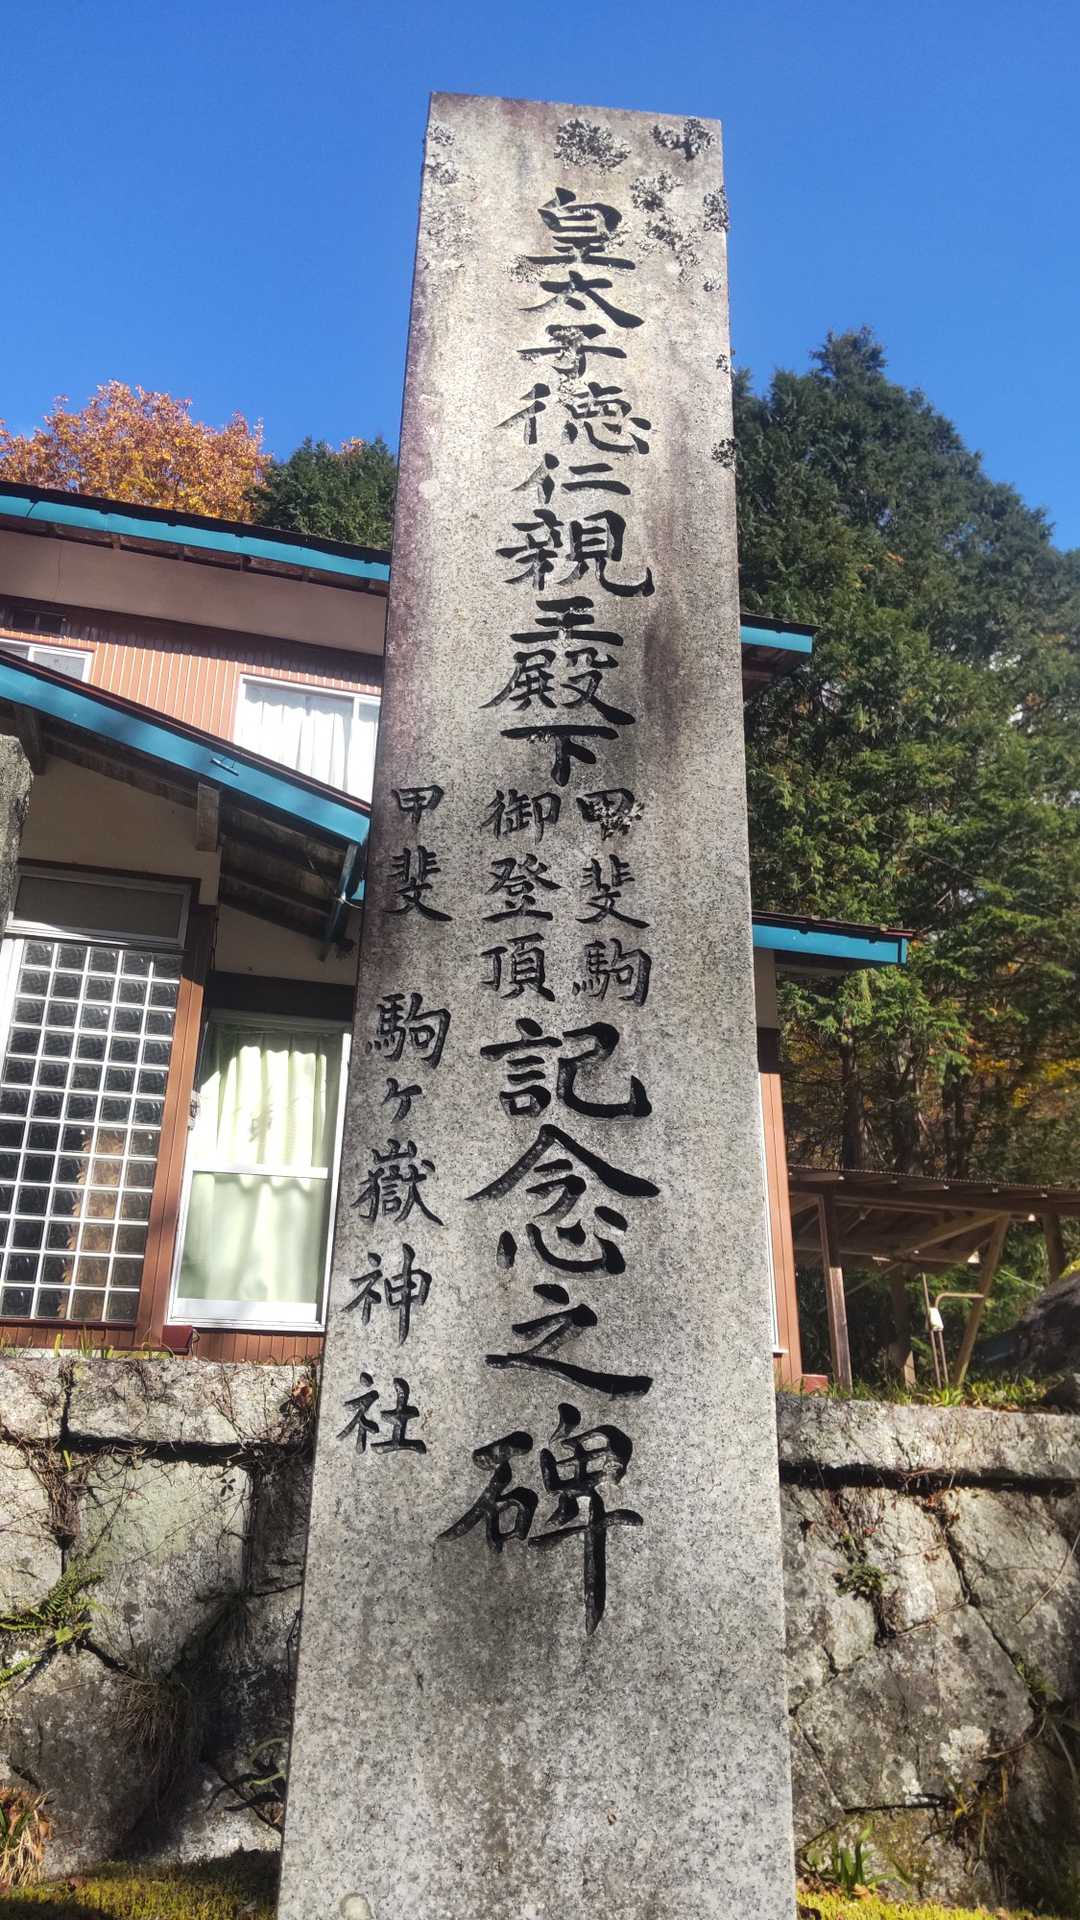 皇太子徳仁親王殿下
甲斐駒
御登頂
記念之碑
甲斐駒ヶ嶽神社